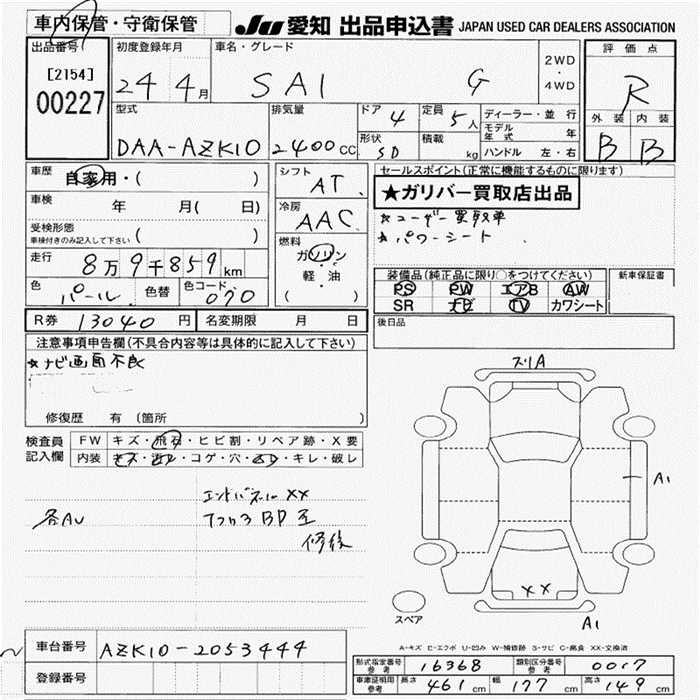 車内保管・守衛保管
JU 愛知 出品申込書 JAPAN USED CAR DEALERS ASSOCIATION
出品番号 初度登録年月 車名・グレード 評価点
[2154]
00227
24 4月 SAI G 2WD・4WD R
型式 排気量 ドア 4 定員 5人 ディーラー・並行 外装 内装
モデル年式 年
DAA-AZK10 2400CC 形状 SD 積載 kg ハンドル 左・右 B B
車歴 自家用・( ) シフト AT セールスポイント(正常に機能するものに限ります)
★ガリバー買取店出品
車検 年 月( 日) 冷房 AAC
★ユーザー買取車
受検形態 ( )
車検付きのみ記入して下さい
★パワーシート
走行 8万9千859km 燃料 ガソリン・軽・油 ( )
装備品(純正品に限り○をつけてください) 新車保証書
色 パール 色替 色コード 070
PS PW エアB AW
SR ナビ TV カワシート
R券 13040円 名変期限 月 日
後日品
注意事項申告欄(不具合内容等は具体的に記入して下さい)
★ナビ画面不良
修復歴 有 (箇所 )
ズリA
検査員記入欄 FW キズ・飛石・ヒビ割・リペア跡・X要
内装 キズ・汚レ・コゲ・穴・凹レ・キレ・破レ
A1
エンドパネルXX
各AU
修後
XX
スペア
A1
A-キズ E-エクボ U-凹み W-補修跡 S-サビ C-腐食 XX-交換済
車台番号 AZK10-2053444
登録番号
形式指定番号 参考 16368 類別区分番号 参考 0017
車庫証明用 参考 長さ 461cm 幅 177cm 高さ 149cm